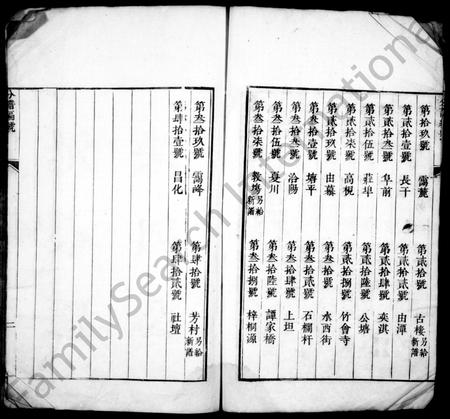 第拾玖號 靄麓 第貳拾號 古樓 另給新譜
第貳拾壹號 長干 第貳拾貳號 由潭
第貳拾叁號 阜前 第貳拾肆號 奕淇
第貳拾伍號 莊埠 第貳拾陸號 公塘
第貳拾柒號 高梘 第貳拾捌號 竹會寺
第貳拾玖號 由幕 第叁拾號 水西街
第叁拾壹號 塘平 第叁拾貳號 石欄杆
第叁拾叁號 洛陽 第叁拾肆號 上坦
第叁拾伍號 夏川 第叁拾陸號 譚家橋
第叁拾柒號 教場 另給新譜 第叁拾捌號 梓桐源
第叁拾玖號 靄峰 第肆拾號 芳村 另給新譜
第肆拾壹號 昌化 第肆拾貳號 社壇
分譜編號
二
FamilySearch International